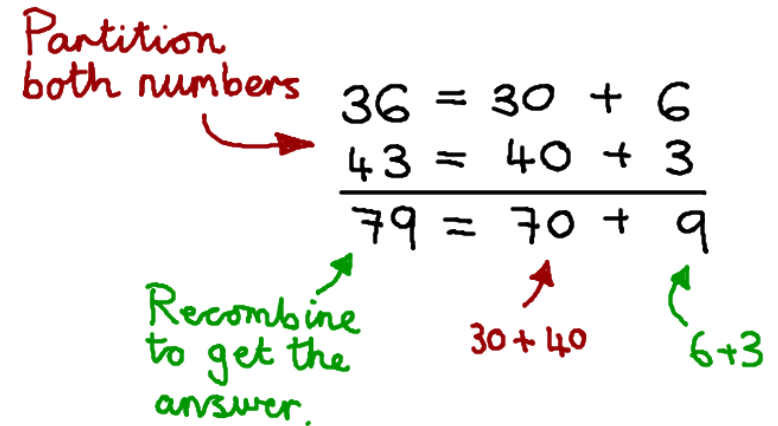 Partition
both numbers
36 = 30 + 6
43 = 40 + 3
79 = 70 + 9
Recombine
to get the
answer.
30 + 40
6 + 3